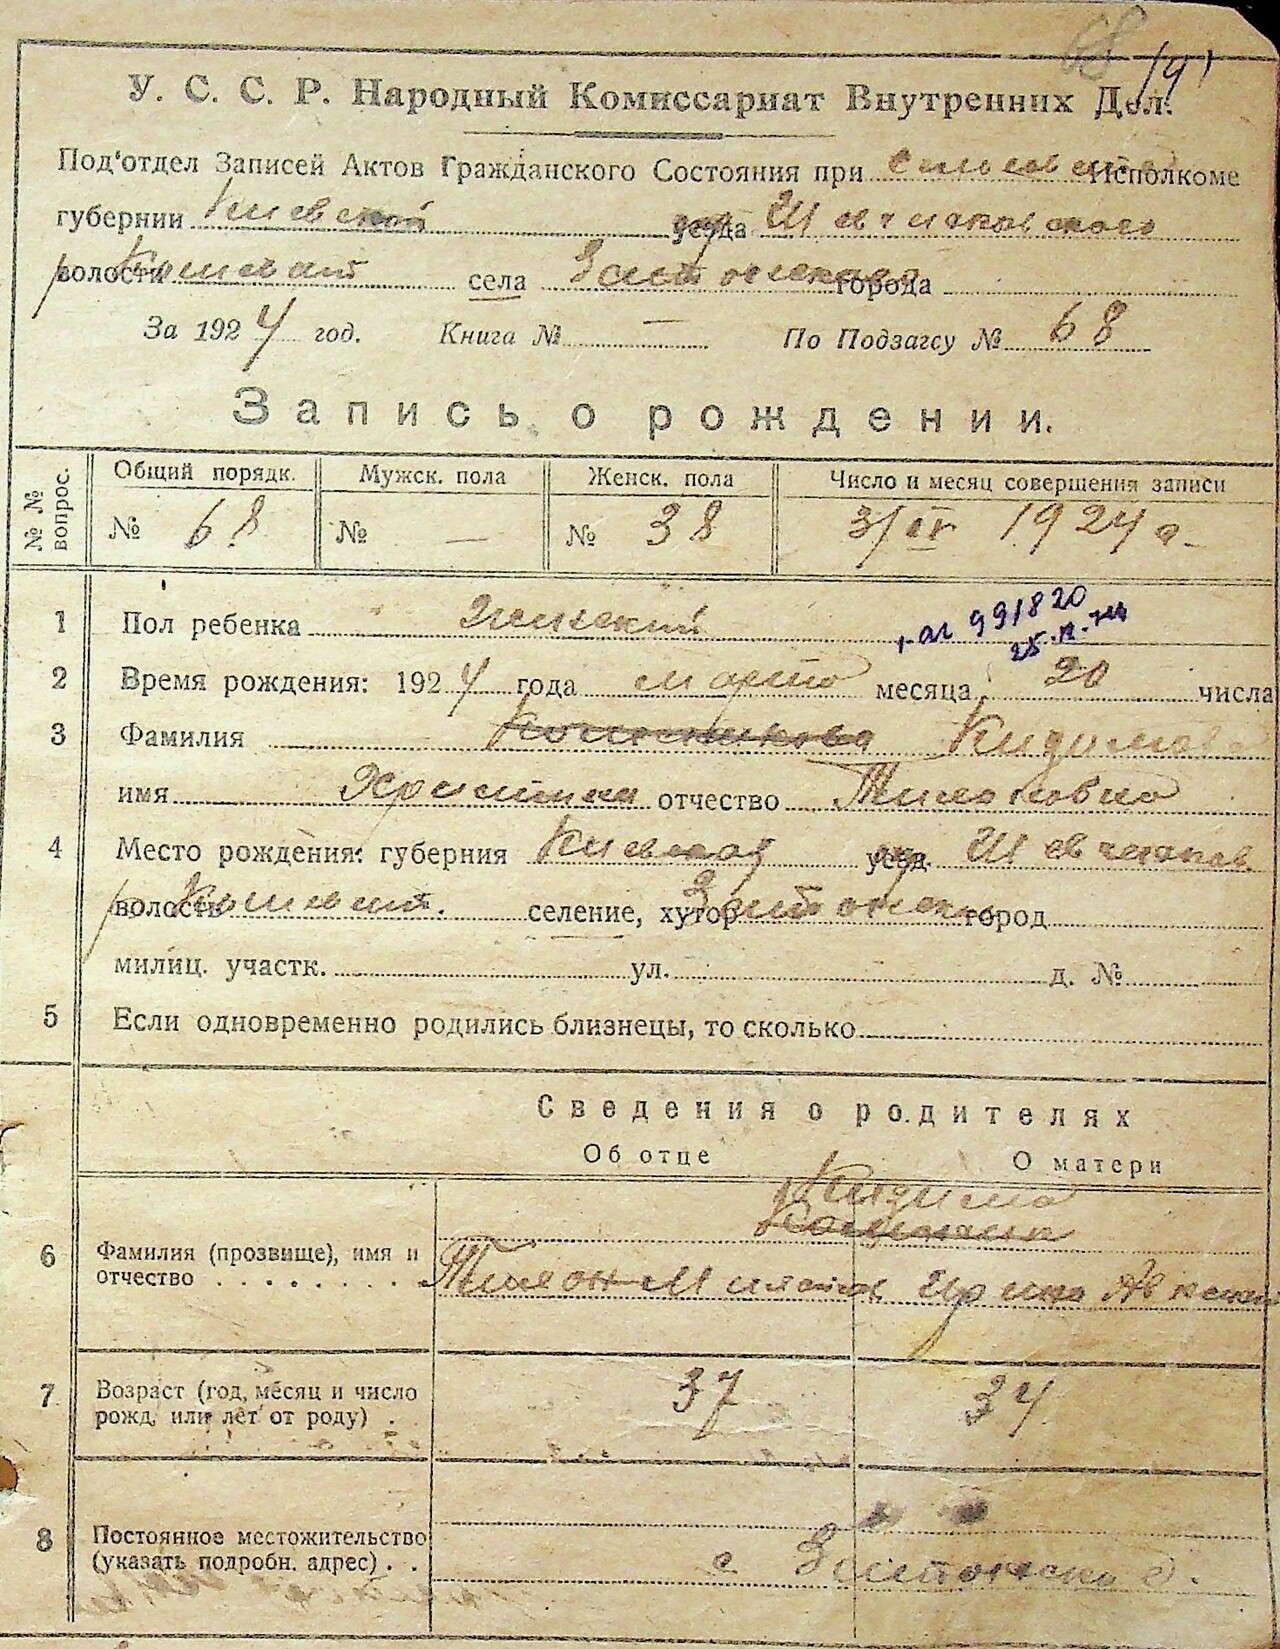 68
У. С. С. Р. Народный Комиссариат Внутренних Дел.
Под'отдел Записей Актов Гражданского Состояния при Исполкоме
губернии Киевской уезда Шевченковского
волости села города
За 1924 год. Книга № — По Подзагсу № 68
Запись о рождении.
№ № вопрос. Общий порядк. Мужск. пола Женск. пола Число и месяц совершения записи
№ 68 № — № 38 3/IV 1924 г.
991820
1 Пол ребенка женский
2 Время рождения: 1924 года марта месяца 20 числа
3 Фамилия
имя Христина отчество Тимоновна
4 Место рождения: губерния Киевская уезд Шевченков.
волость селение, хутор город
милиц. участк. ул. д. №
5 Если одновременно родились близнецы, то сколько
Сведения о родителях
Об отце О матери
Кидима
6 Фамилия (прозвище), имя и
отчество . . . . . . . . . Тимон Ирина
7 Возраст (год, месяц и число
рожд. или лет от роду) . 37 34
8 Постоянное местожительство
(указать подробн. адрес) . . с